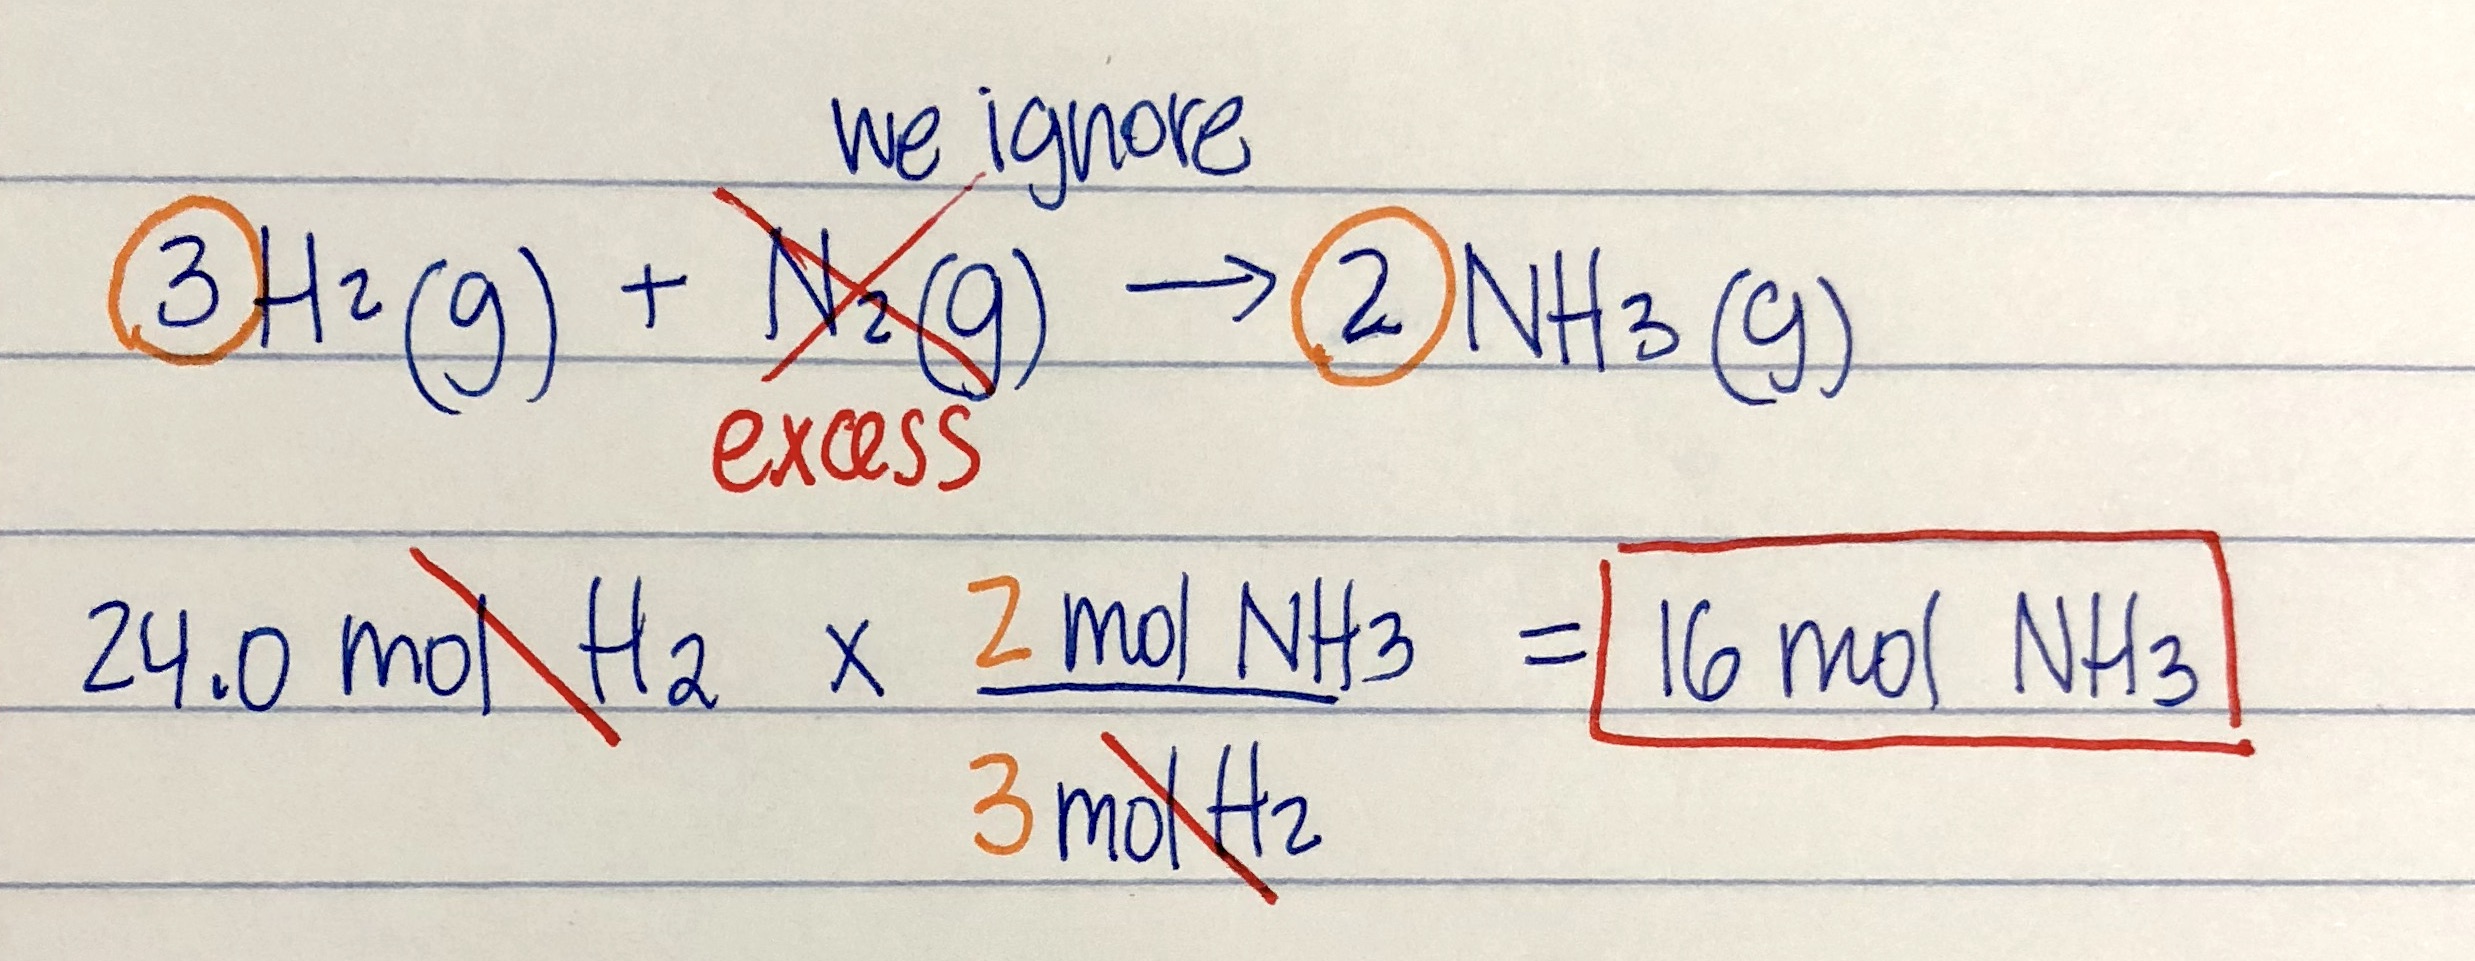 we ignore
3H2(g) + N2(g) → 2NH3(g)
excess
24.0 mol H2 x 2 mol NH3 = 16 mol NH3
3 mol H2